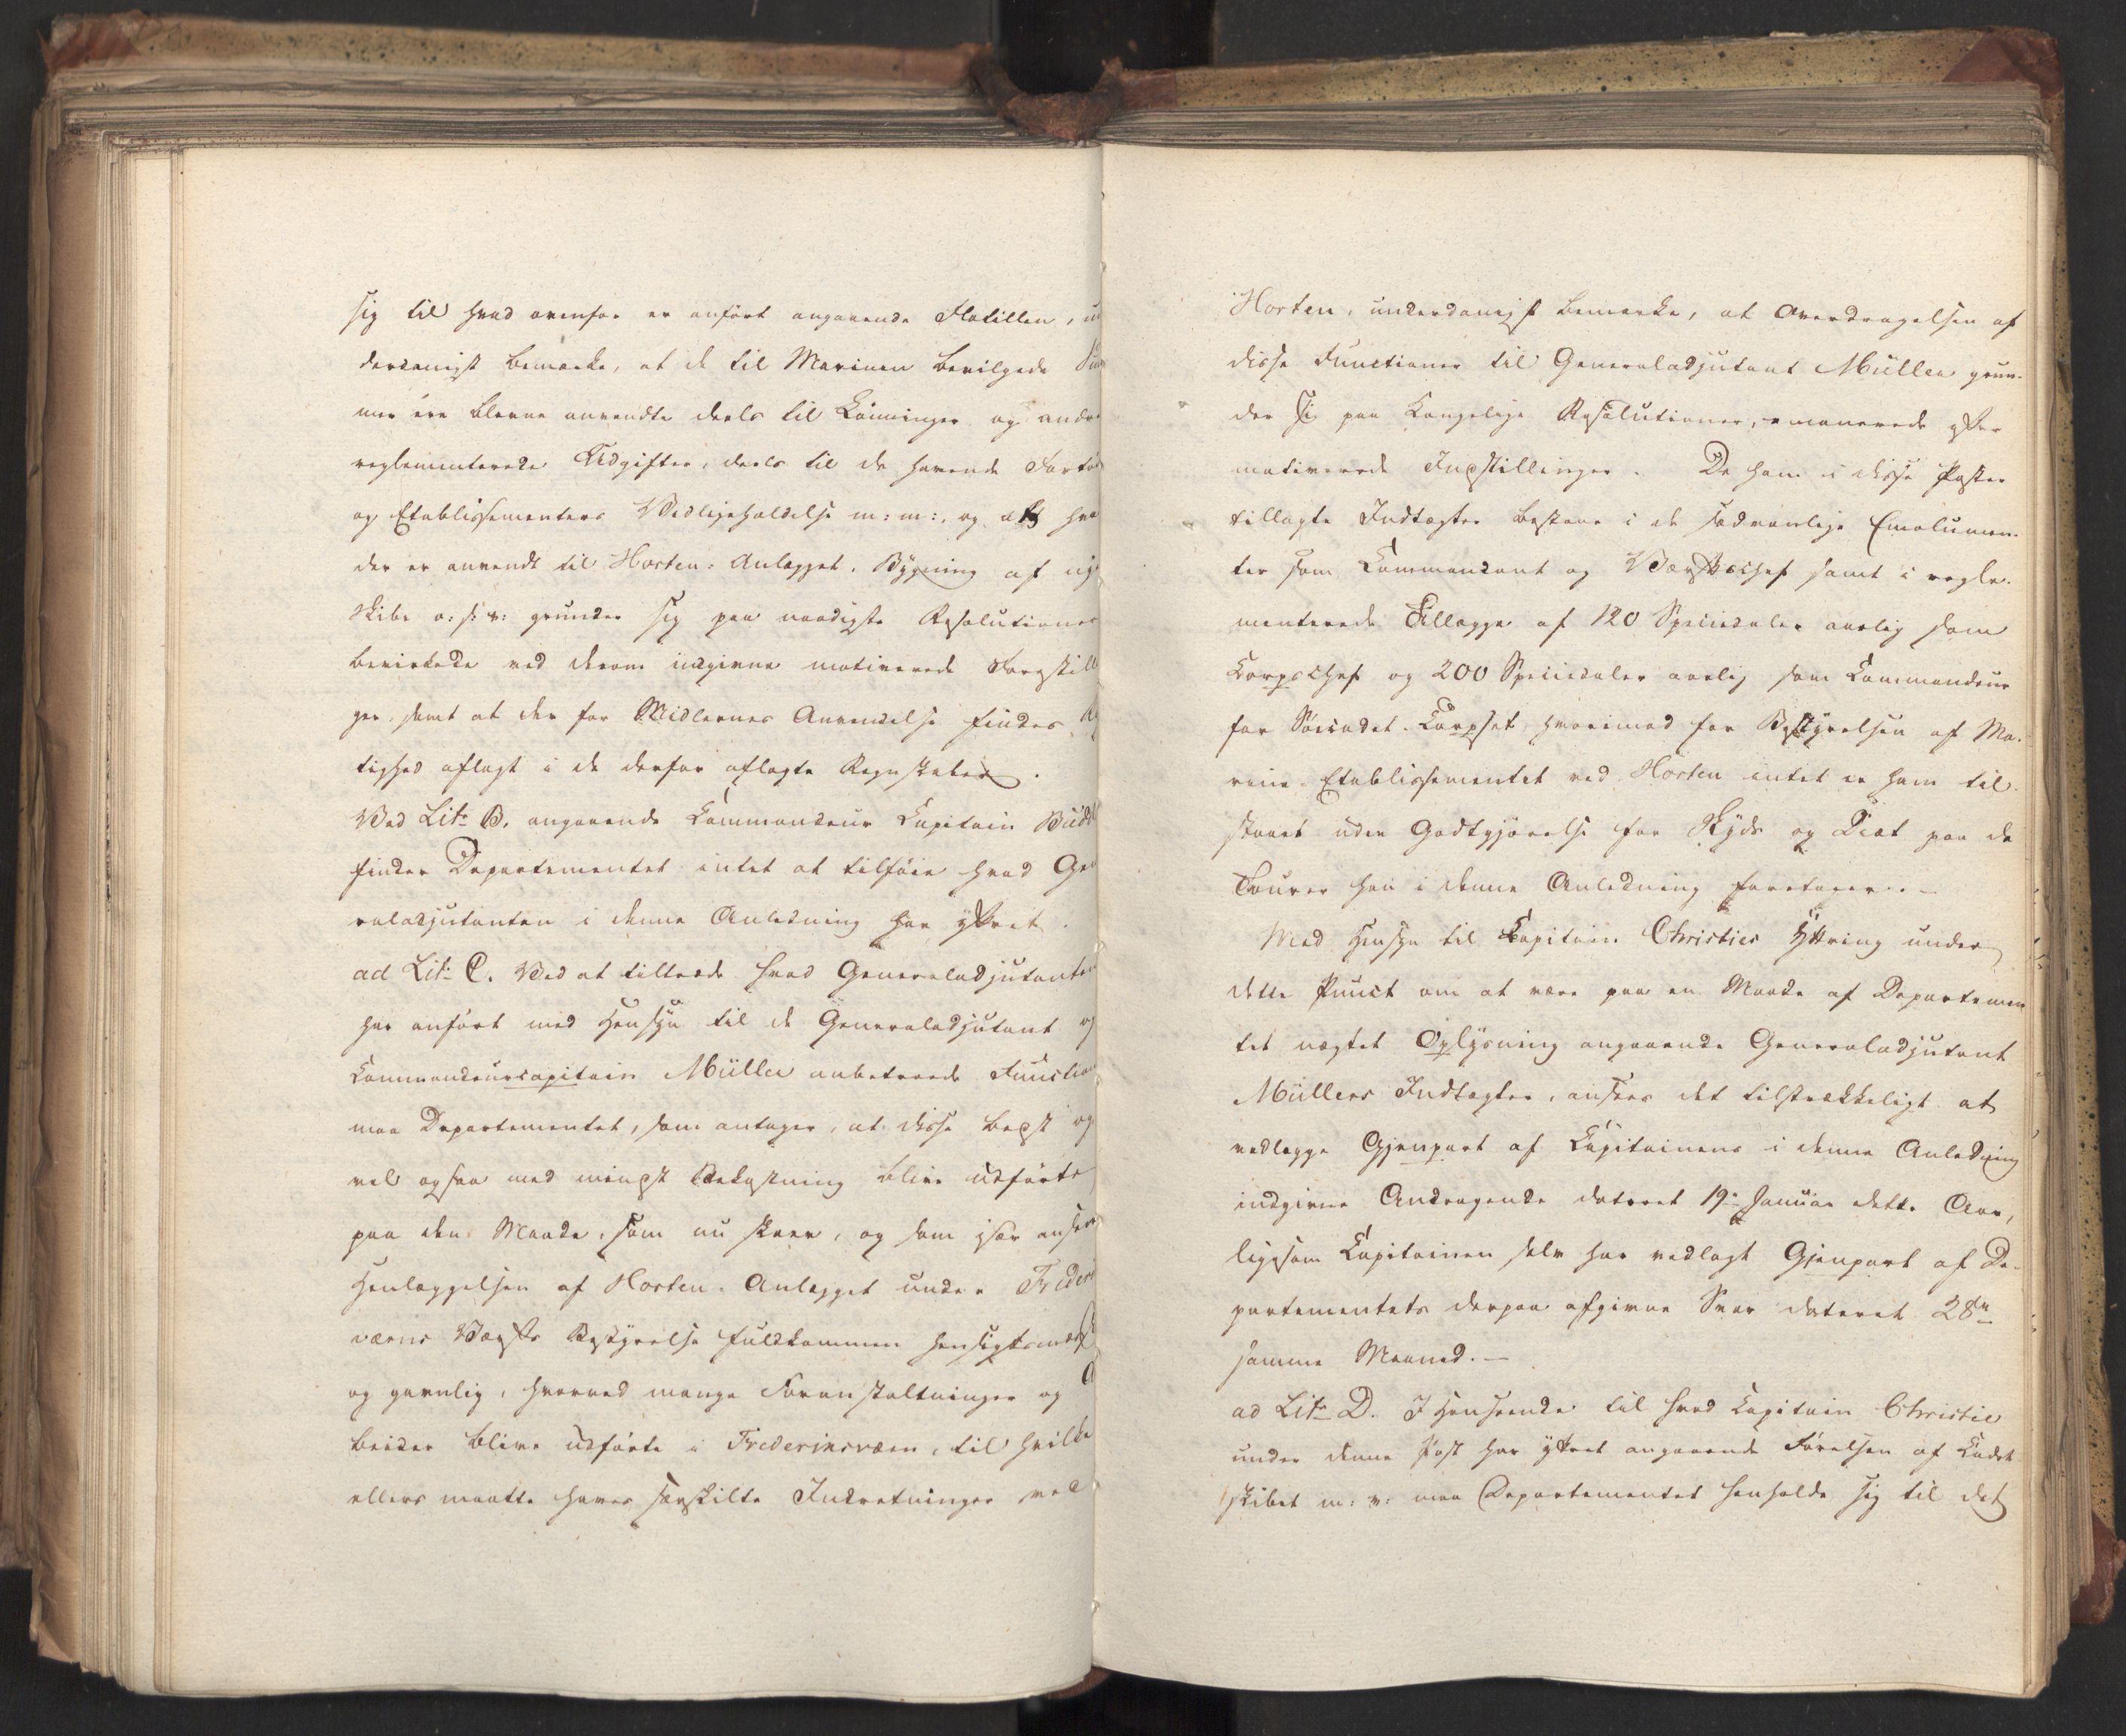 sig til hvad ovenfor er anført angaaende Flotillen, un
derdanigst bemærke, at de til Marinen bevilgede Sum
mer ere blevne anvendte deels til Lønninger og andre
reglementerede Udgifter, deels til de havende Fartøi
og Etablissementers Vedligeholdelse m: m:, og at hva
der er anvendt til Horten-Anlægget, Bygning af nye
Skibe o: s: v: grunder sig paa naadigste Resolutioner
bevirkede ved derom indgivne motiverede Forestill
ger, samt at der for Midlernes Anvendelse findes Rig
tighed aflagt i de derfor aflagte Regnskaber.
Ved Litr B. angaaende Commandeur Capitain Budde
finder Departementet intet at tilføie hvad Gen
raladjutanten i denne Anledning har yttret.
ad Litr C. Ved at tiltræde hvad Generaladjutanten
har anført med Hensyn til de Generaladjutant og
Commandeurcapitain Müller anbetroede Function
maa Departementet, som antager, at disse bedst og
vel ogsaa med mindst Bekostning blive udførte
paa den Maade, som nu skeer, og som især anseer
Henlæggelsen af Horten-Anlægget under Frederi
værns Værfts Bestyrelse fuldkommen hensigtsmæss
og gavnlig, hvorved mange Foranstaltninger og A
beider blive udførte i Frederiksværn, til hvilke
ellers maatte haves særskilte Indretninger ved
Horten, underdanigst bemærke, at Overdragelsen af
disse Functioner til Generaladjutant Müller grun-
der sig paa Kongelige Resolutioner, emanerede efter
motiverede Indstillinger. De ham i disse Poster
tillagte Indtægter bestaae i de sædvanlige Emolumen-
ter som Commandant og Værftschef samt i regle-
menterede Tillægge af 120 Speciedaler aarlig som
Corpschef og 200 Speciedaler aarlig som Commandeur
for Søecadet-Corpset, hvorimod for Bestyrelsen af Ma-
rine-Etablissementet ved Horten intet er ham til-
staaet uden Godtgjørelse for Skyds og Diæt paa de
Tourer han i denne Anledning foretager. —
Med Hensyn til Capitain Christies Yttring under
dette Punct om at være paa en Maade af Departemen
tet nægtet Oplysning angaaende Generaladjutant
Müllers Indtægter, ansees det tilstrækkeligt at
vedlægge Gjenpart af Capitainens i denne Anledning
indgivne Andragende dateret 19de Januar dette Aar,
ligesom Capitainen selv har vedlagt Gjenpart af De-
partementets derpaa afgivne Svar dateret 28de
samme Maaned. —
ad Litr D. I Henseende til hvad Capitain Christie
under denne Post har yttret angaaende Førelsen af Cadet
skibet m: v: maa Departementet henholde sig til det